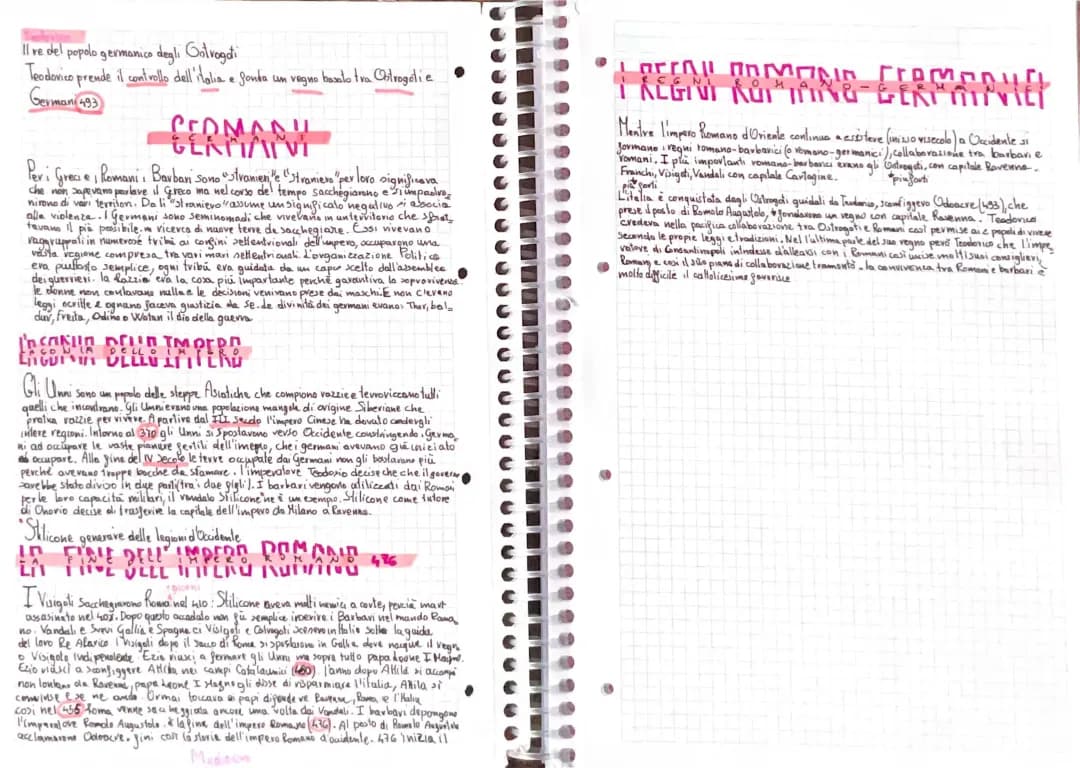 Teodorico
Il re del popolo germanico degli Ostrogoti
Teodorico prende il controllo dell'italia e fonda un regno basato tra Ostrogoti e
Germani 493
GERMANI
Per i Greci e i Romani i Barbari sono "stranieri", "straniero" per loro significava
che non sapevano parlare il Greco ma nel corso del tempo sacchegiarono e s'impadro_
nirono di vari territori. Da lì "straniero" assume un significato negativo si associa
alla violenza. I Germani sono seminomadi che vivevano in un territorio che sfrut_
tavano il più possibile in ricerca di nuove terre da sacchegiare. Essi vivevano
raggruppati in numerose tribù ai confini settentrionali dell'impero, occuparono una
vasta regione compresa tra vari mari settentrionali. L'organizzazione Politica
era piuttosto semplice, ogni tribù era guidata da un capo scelto dall'assemblea
dei guerrieri. la Razzia era la cosa più importante perché garantiva la sopravvivenza
le donne non contavano nulla e le decisioni venivano prese dai maschi. E non c'erano
leggi scritte e ognuno faceva giustizia da se. le divinità dei germani erano: Thor, bal_
dur, Freita, Odino o Wotan il dio della guerra
L'AGONIA DELL'IMPERO
Gli Unni sono un popolo delle steppe Asiatiche che compiono razzie e terrorizzano tutti
quelli che incontrano. Gli Unni erano una popolazione mangola di origine Siberiana che
pratica razzie per vivere. A partire dal III Secolo l'impero Cinese ha dovuto
intere regioni. Intorno al 370 gli Unni si spostavano verso Occidente constringendo i Germa_
ni ad occupare le vaste pianure fertili dell'impero, che i germani avevano già iniziato
ad occupare. Alla fine del IV Secolo le terre occupate dai Germani non gli bastarono più
perché avevano troppe bocche da sfamare. l'imperatore Teodosio decise che che il governo
sarebbe stato diviso in due parti (tra i due figli). I barbari vengono utilizzati dai Romani
per le loro capacità militari, il vandalo Stilicone ne è un esempio. Stilicone come tutore
di Onorio decise di trasferire la capitale dell'impero da Milano a Ravenna.
*Stilicone generare delle legioni d'Occidente
LA FINE DELL'IMPERO ROMANO 476
I Visigoti Saccheggiarono Roma nel 410: Stilicone aveva molti nemici a corte, perciò
assassinato nel 408. Dopo questo accadato non fù semplice inserire i Barbari nel mondo Roma_
no. Vandali e Svevi Gallia e Spagna ci Visigoti e Ostrogoti scesero in Italia sotto la guida
del loro Re Alarico i Visigoti dopo il sacco di Roma si spostarono in Gallia dove nacque il regn_
o Visigoto Indipendente. Ezio riuscì a fermare gli Unni ma sopra tutto papa Leone I Magno.
Ezio riuscì a sconfiggere Attila nei campi Catalaunici l'anno dopo Attila si accampò
non lontano da Ravenna, papa Leone I Magno gli disse di risparmiare l'italia, Attila si
convinse e se ne andò. Ormai toccava ai papi difendere Ravenna, Roma, e l'Italia
così nel 455 Roma venne saccheggiata ancora una volta dai Vandali. I barbari depongono
l'imperatore Romolo Augustolo. è la fine dell'impero Romano (476). Al posto di Romolo Augustolo
acclamarono Odoacre. finì così la storia dell'impero Romano d'occidente. 476 inizia il
Medioevo
I REGNI ROMANO-GERMANICI
Mentre l'impero Romano d'Oriente continua a esistere (inizio VI secolo) a Occidente si
formano i regni romano-barbarici (o romano-germanici), collaborazione tra barbari e
romani. I più importanti romano-barbarici erano gli Ostrogoti, con capitale Ravenna.
Franchi, Visigoti, Vandali con capitale Cartagine. *più forti
più forti
L'italia è conquistata dagli Ostrogoti guidati da Teodorico, sconfiggero Odoacre (493), che
prese il posto di Romolo Augustolo, fondarono un regno con capitale Ravenna. Teodorico
credeva nella pacifica collaborazione tra Ostrogoti e Romani così permise ai 2 popoli di vivere
secondo le propie leggi e tradizioni. Nell'ultima parte del suo regno però Teodorico che l'impe_
ratore di Constantinopoli intendesse allearsi con i Romani così uccise molti suoi consiglieri
Romani, e così il suo piano di collaborazione tramontò. la convivenza tra Romani e barbari è
molto difficile il cattolicesimo